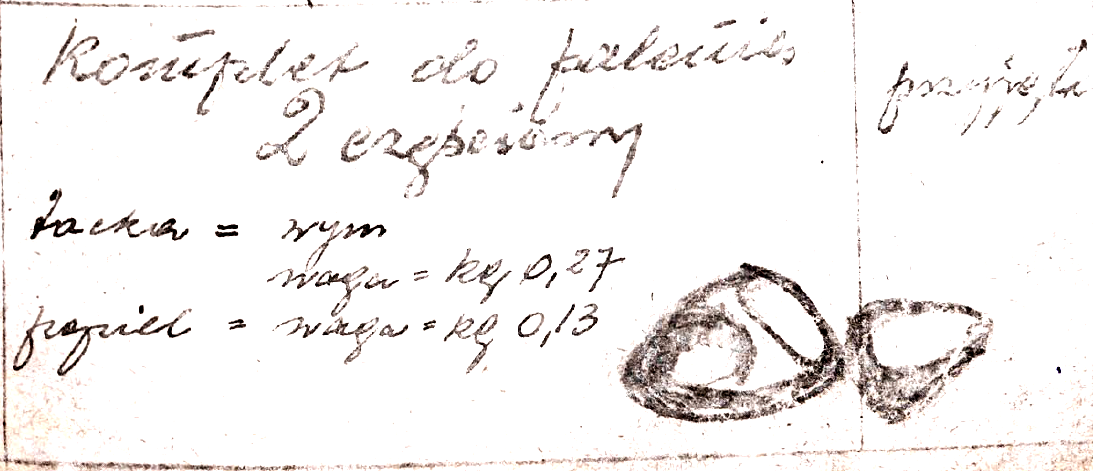 Komplet do palenia
2 częściowy
tacka = wym
waga = kg 0,27
popiel = waga = kg 0,13
przyjęta